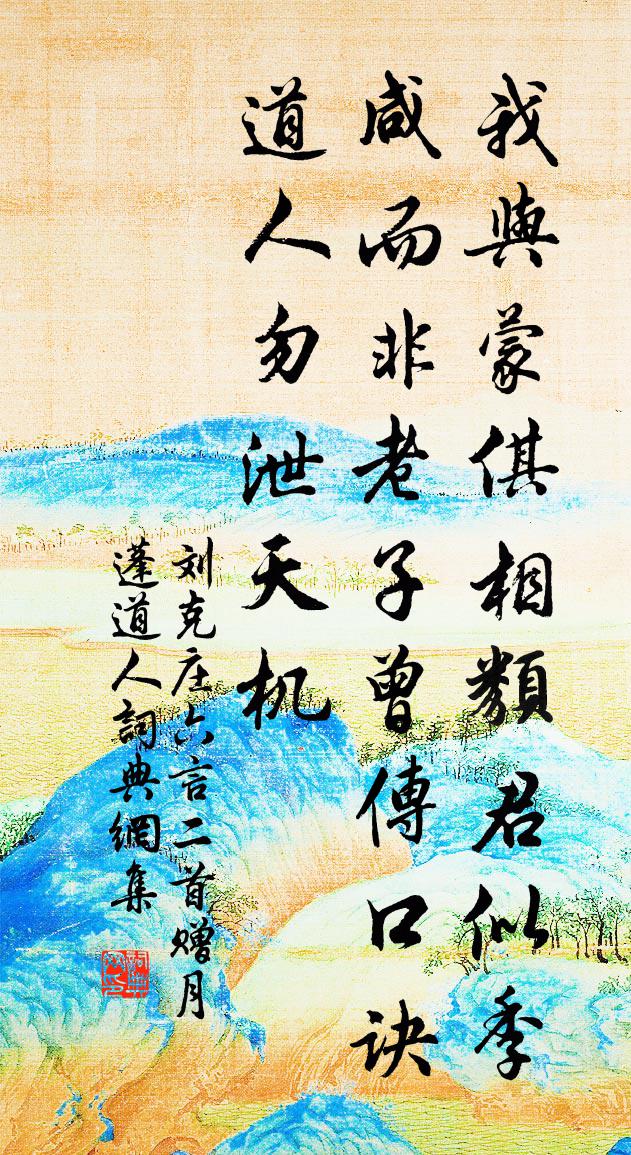 我與蒙倛相類君似季
咸而非老子曾傳口訣
道人勿泄天机
刘克庄六言二首赠月
蓬道人詞典網集